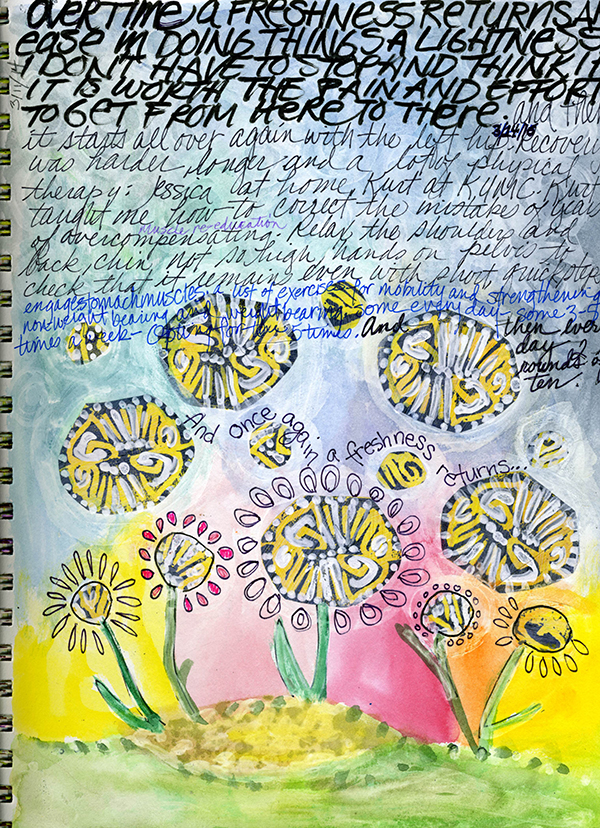 OVERTIME A FRESHNESS RETURNS AN
EASE IN DOING THINGS A LIGHTNESS
I DON'T HAVE TO STOP AND THINK IF
IT IS WORTH THE PAIN AND EFFORT
TO GET FROM HERE TO THERE. and then
3/11/14
3/24/15
it starts all over again with the left hip. Recovery
was harder, longer and a lot of physical
therapy: Jessica at home, Kurt at KUMC. Kurt
taught me how to correct the mistakes of years
muscle re-education
of overcompensating. Relax the shoulders and
back, chin not so high, hands on pelvis to
check that it remains even with pivot quick stops
engage stomach muscles, a list of exercises for mobility and strengthening
non weight bearing and weight bearing some every day - some 3-5
times a week - Opting for 5 times. And then every
day ?
rounds of
ten.
And once again, a freshness returns...